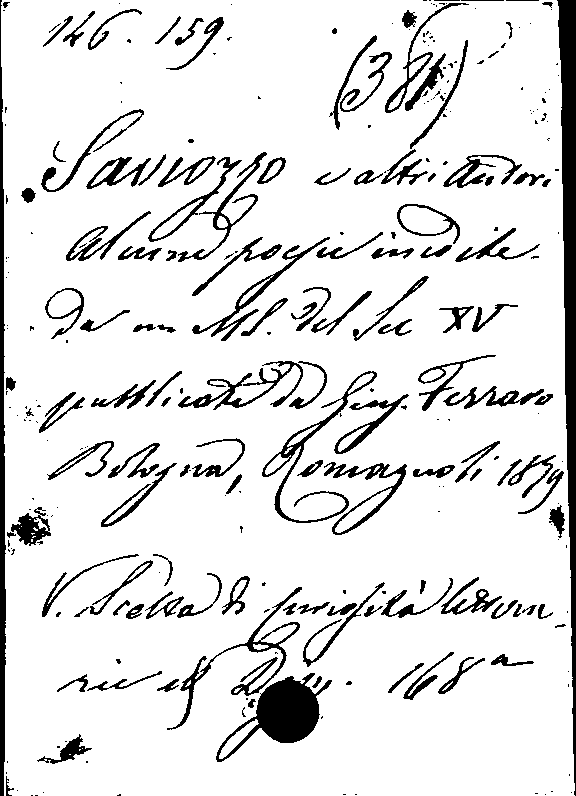 146. 159.
(381)
Saviozzo e altri Autori
Alcune poesie inedite
da un MS. del Sec XV
pubblicate da Gius. Ferraro
Bologna, Romagnoli 1879
V. Scelta di curiosità letterar-
rie etc Disp. 168ª